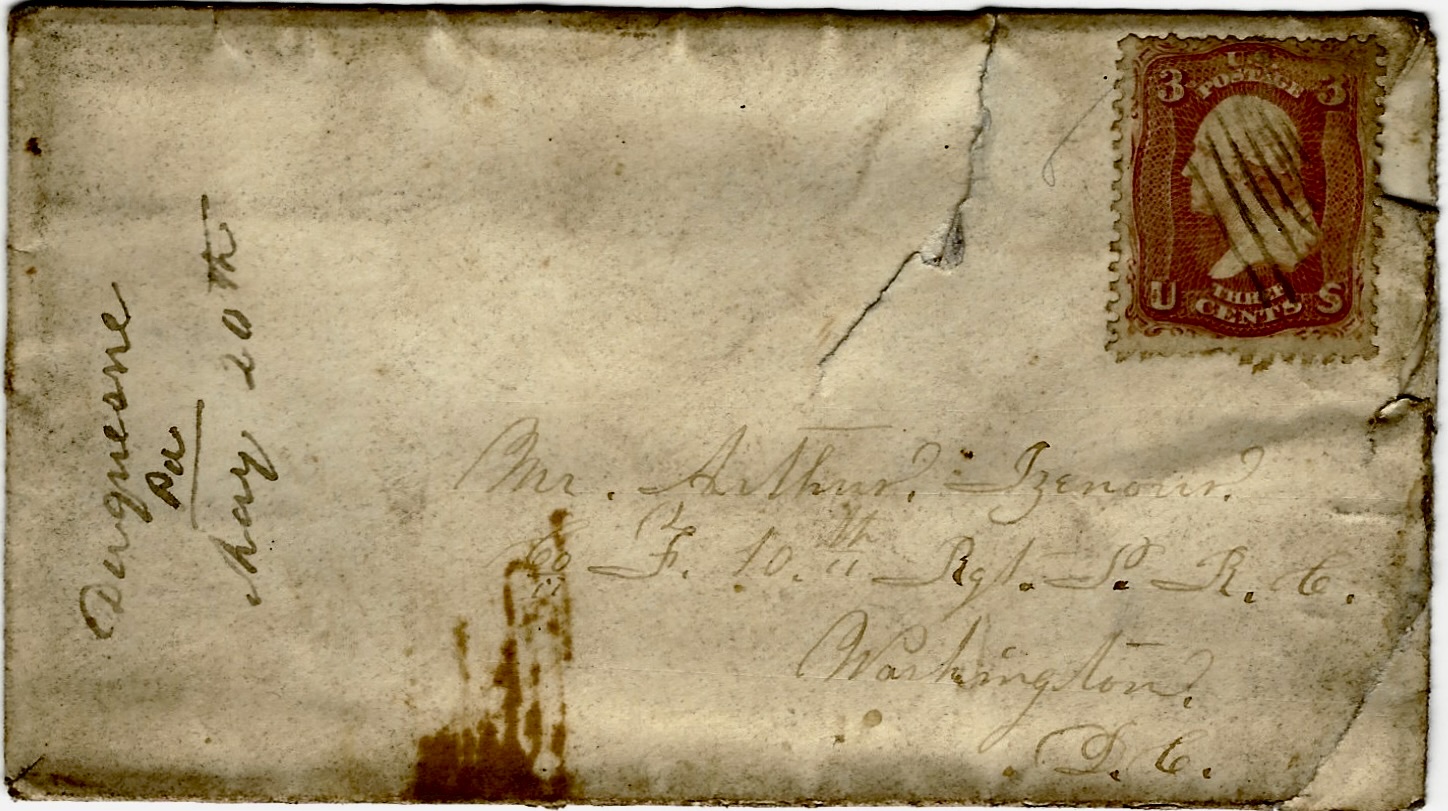 Duquesne
Pa
May 20th
3 U.S. 3
POSTAGE
U THREE S
CENTS
Mr. Arthur. Izenour.
Co F. 10.th Rgt. P. R. C.
Washington.
D. C.